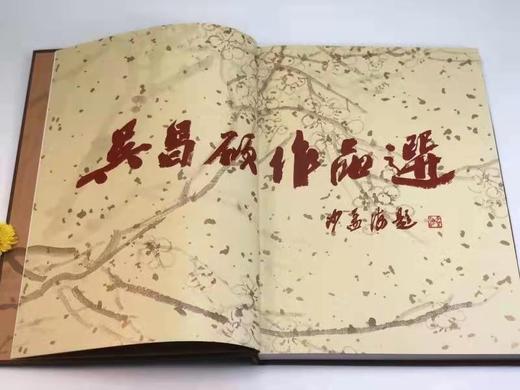 吳昌碩作品選
沙孟海題